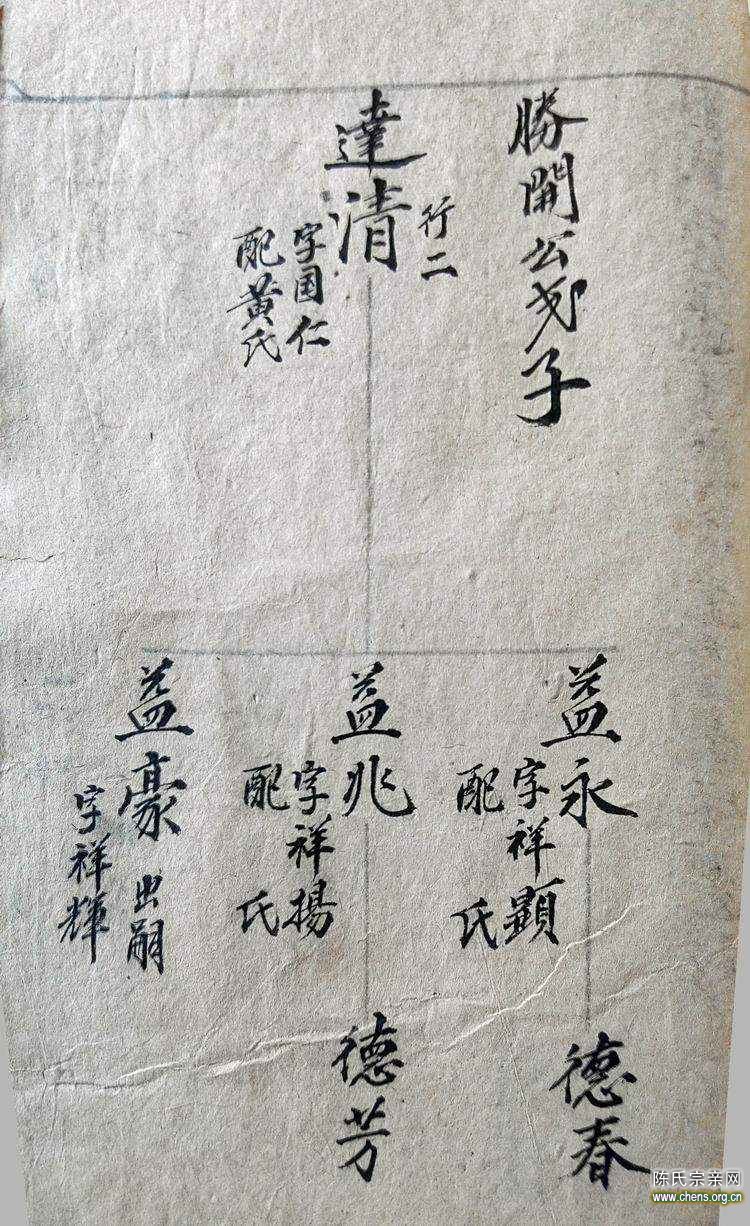 勝開公子
達清
行二
字国仁
配黄氏
益永
字祥顕
配 氏
益兆
字祥揚
配 氏
益豪
出嗣
字祥輝
德春
德芳
陈氏宗亲网
www.chens.org.cn